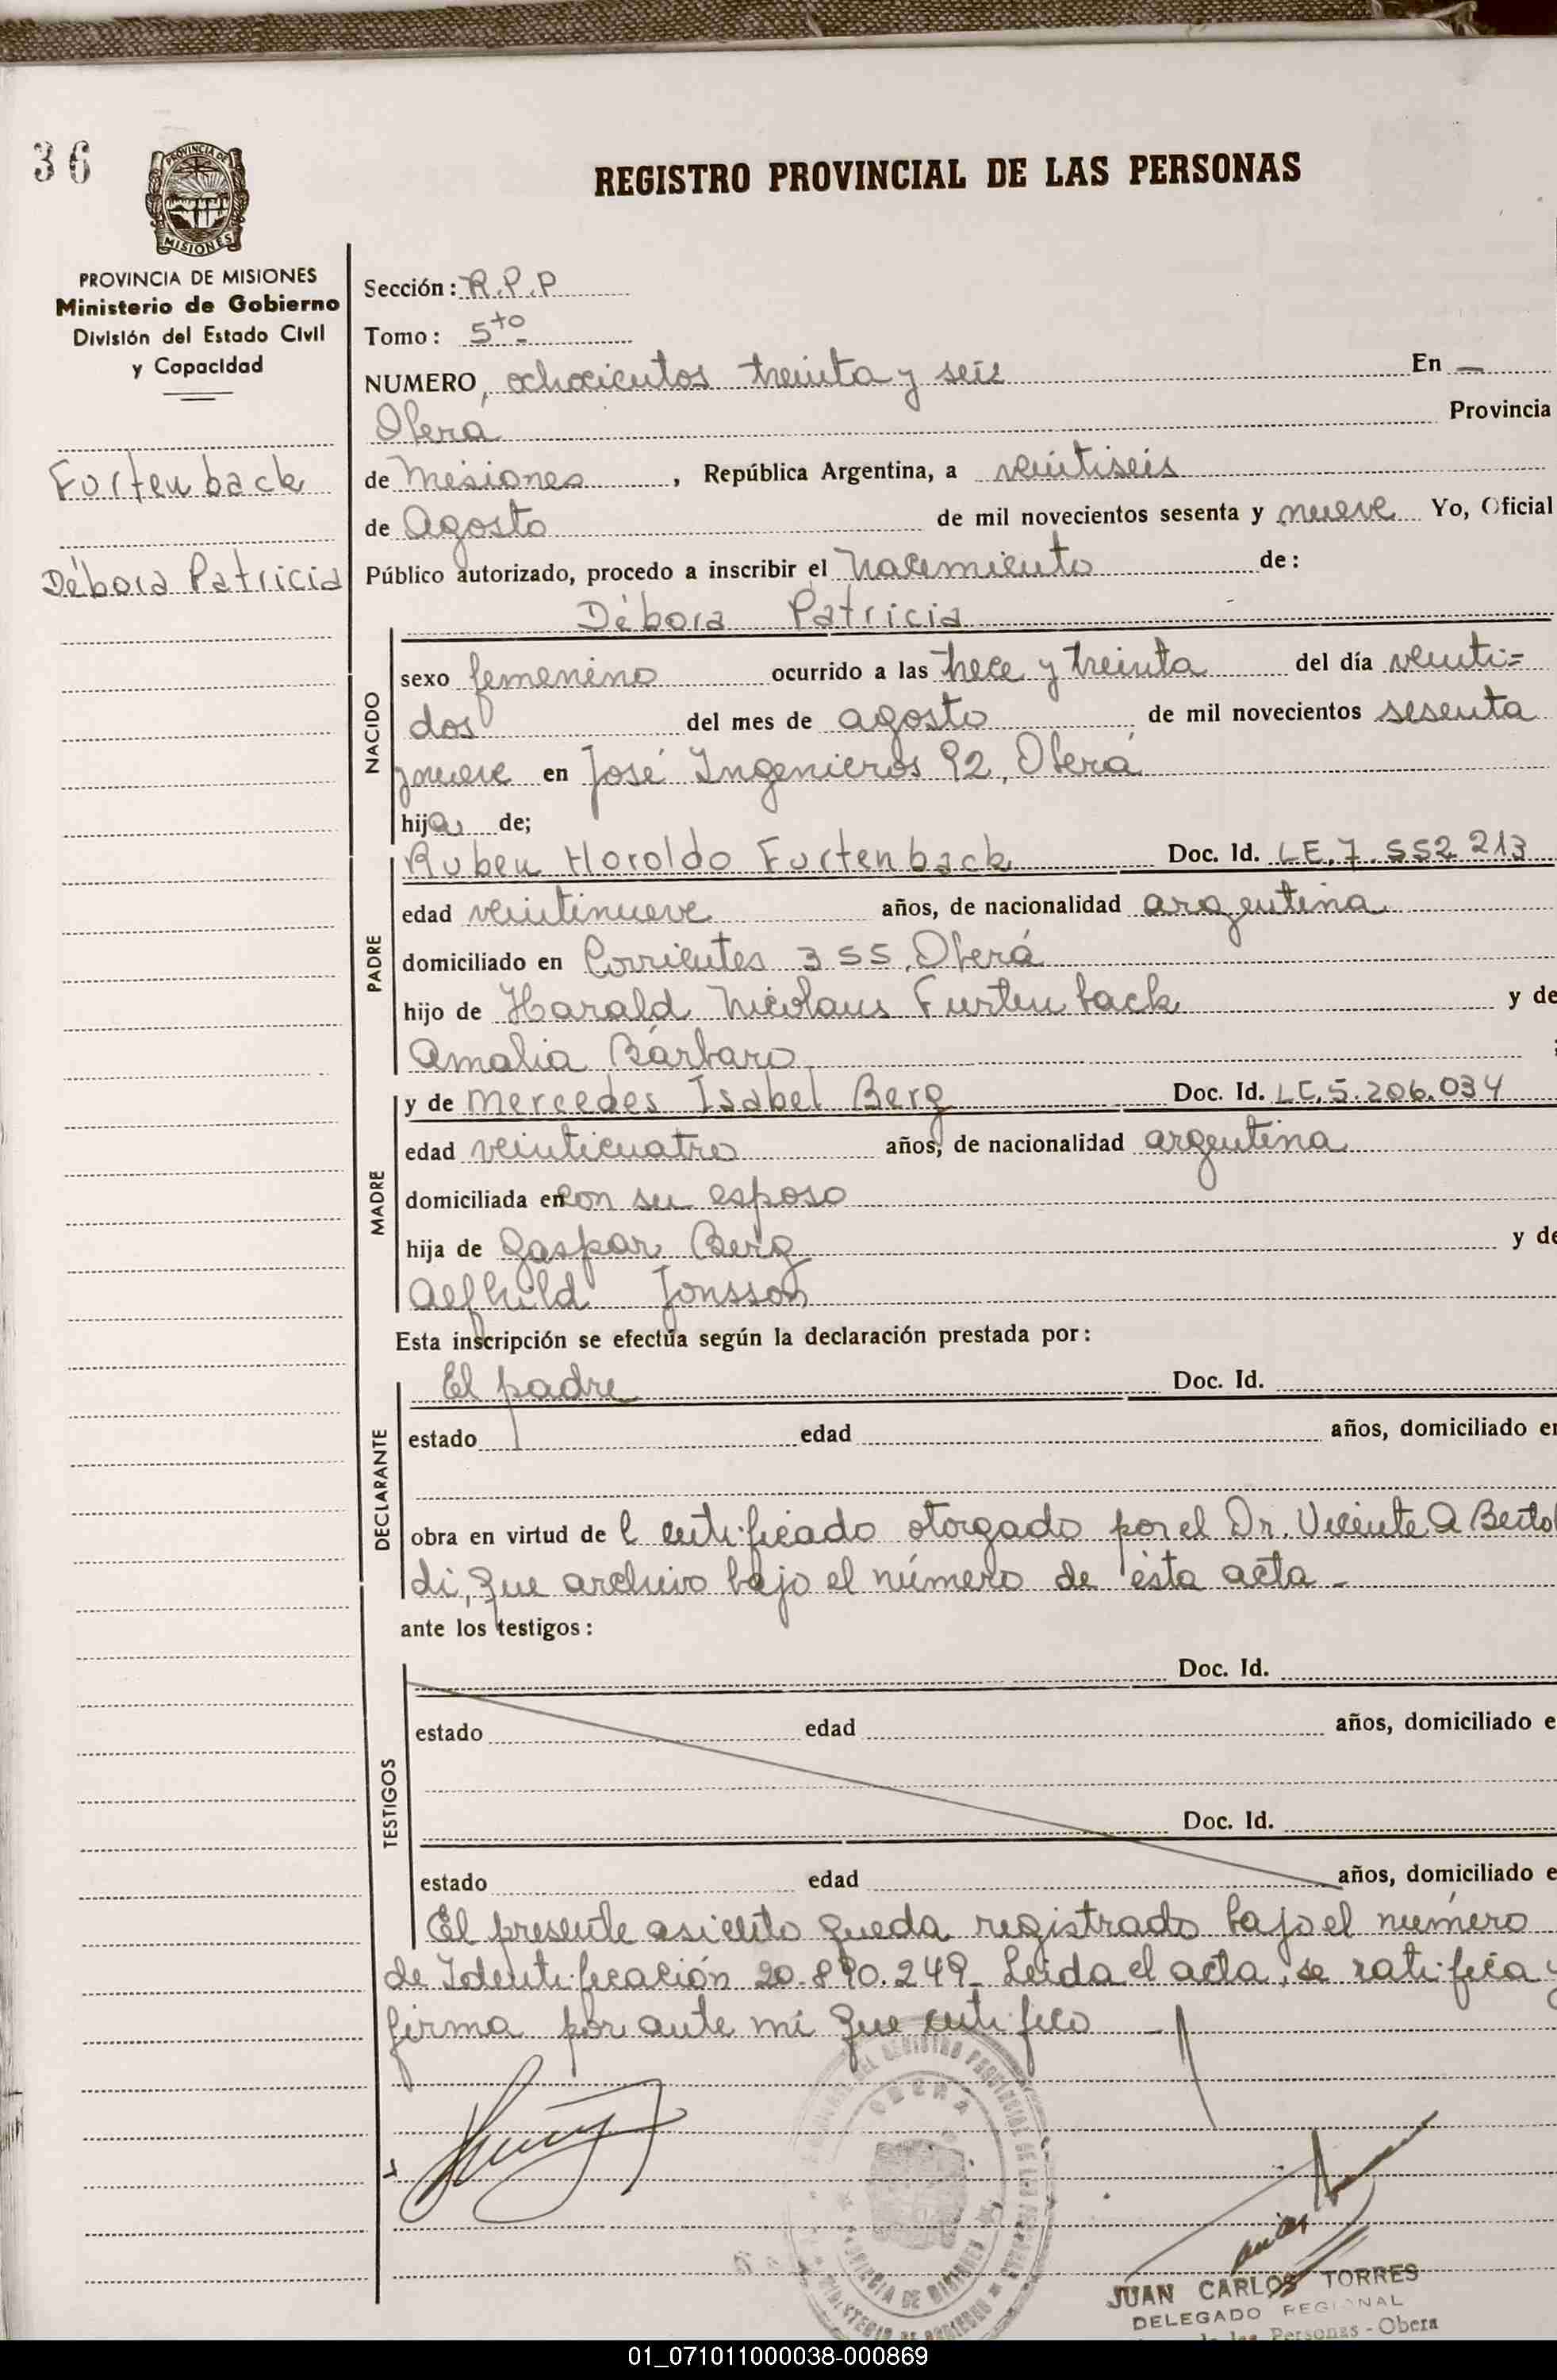 36
PROVINCIA DE
MISIONES
REGISTRO PROVINCIAL DE LAS PERSONAS
PROVINCIA DE MISIONES
Ministerio de Gobierno
División del Estado Civil
y Capacidad
Furtenback
Débora Patricia
Sección: R.P.P
Tomo: 5to
NUMERO, ochocientos treinta y seis En —
Oberá Provincia
de Misiones, República Argentina, a veintiseis
de Agosto de mil novecientos sesenta y nueve Yo, Oficial
Público autorizado, procedo a inscribir el Nacimiento de:
Débora Patricia
NACIDO
sexo femenino ocurrido a las trece y treinta del día veinti=
dos del mes de agosto de mil novecientos sesenta
y nueve en José Ingenieros 92, Oberá
hija de;
PADRE
Ruben Haroldo Furtenback Doc. Id. LE.7.552.213
edad veintinueve años, de nacionalidad argentina
domiciliado en Corrientes 355, Oberá
hijo de Harald Nicolaus Furtenback y de
Amalia Bárbaro
MADRE
y de Mercedes Isabel Berg Doc. Id. LC.5.206.034
edad veinticuatro años, de nacionalidad argentina
domiciliada en con su esposo
hija de Gaspar Berg y de
Aefhild Jonsson
Esta inscripción se efectúa según la declaración prestada por:
DECLARANTE
El padre Doc. Id.
estado edad años, domiciliado en
obra en virtud de l certificado otorgado por el Dr. Vicente A Bertol
di, que archivo bajo el número de ésta acta -
ante los testigos:
TESTIGOS
Doc. Id.
estado edad años, domiciliado e
Doc. Id.
estado edad años, domiciliado e
El presente asiento queda registrado bajo el número
de Identificación 20.890.249_ Leida el acta, se ratifica y
firma por ante mí que certifico —
OBERA
JUAN CARLOS TORRES
DELEGADO REGIONAL
de las Personas - Obera
01_071011000038-000869